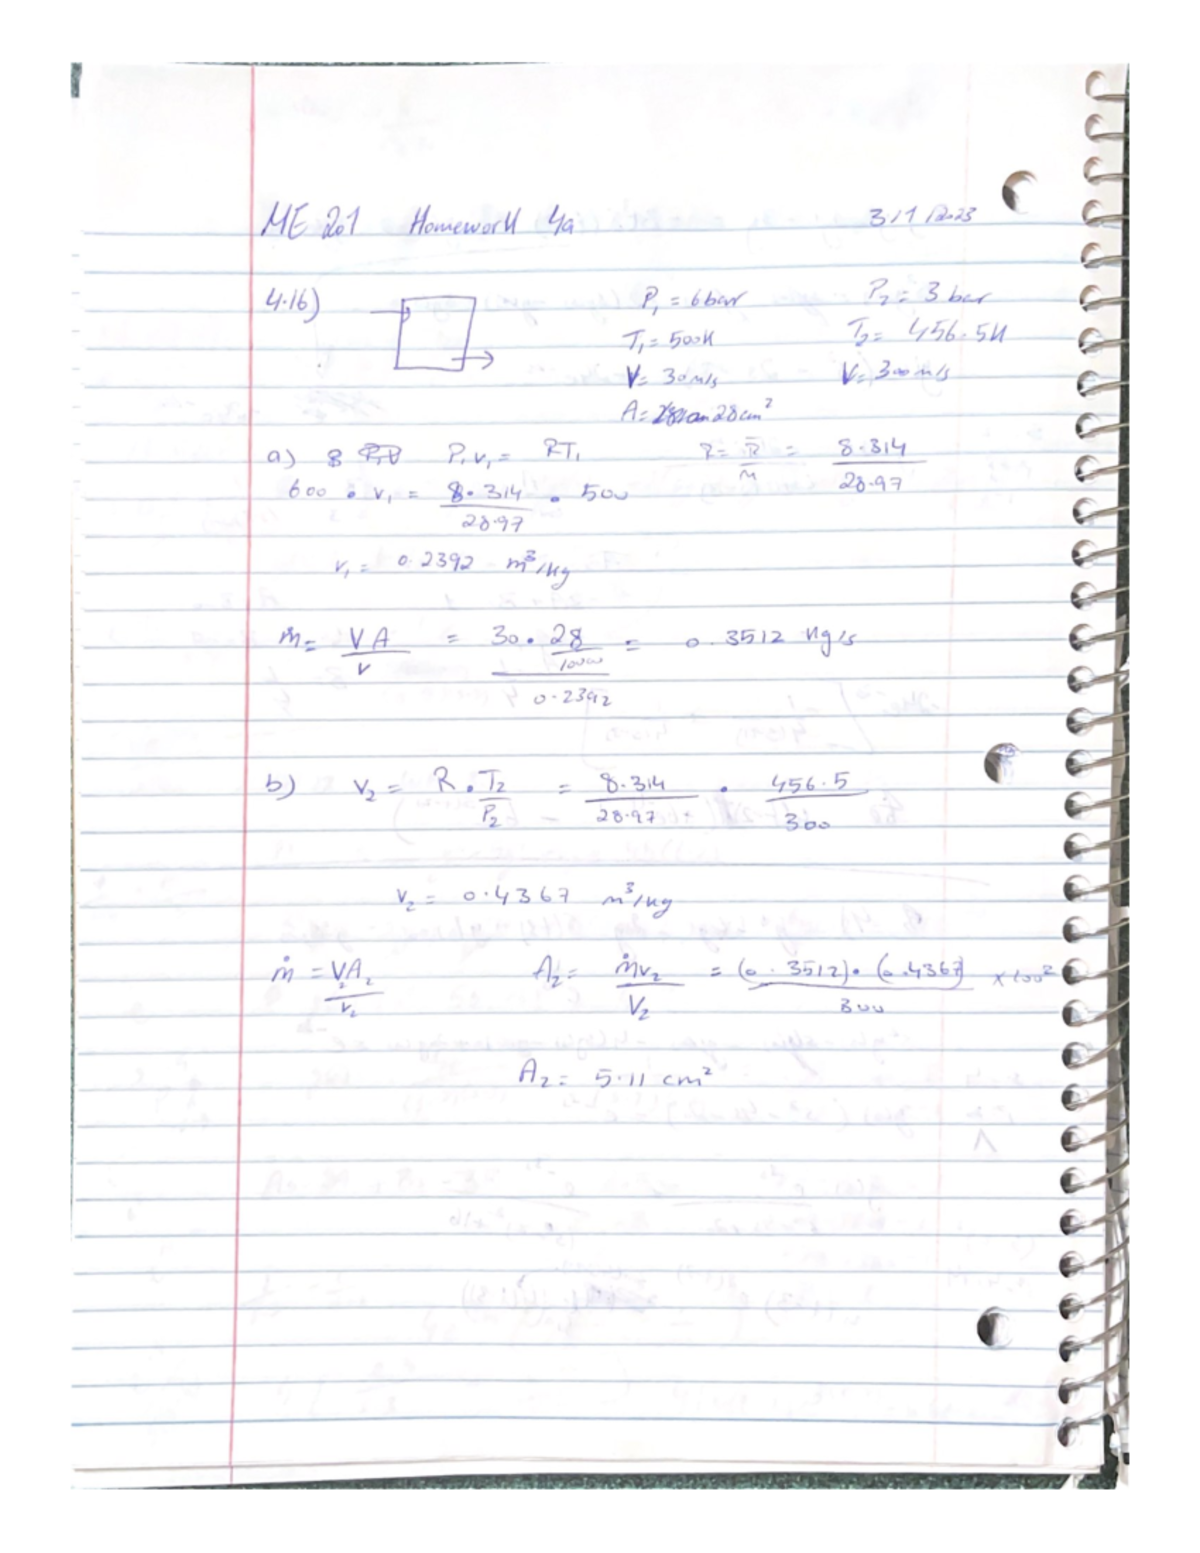 ME 201 Homework 4a 3/1/2023
4.16) P₁ = 6 bar P₂ = 3 bar
T₁ = 500K T₂ = 456.5K
V = 30 m/s V = 300 m/s
A = 28cm²
a) P₁v₁ = RT₁ R = R̄/M = 8.314/28.97
600 · v₁ = 8.314/28.97 · 500
v₁ = 0.2392 m³/kg
ṁ = VA/v = (30 · 28/10000)/0.2392 = 0.3512 kg/s
b) v₂ = R · T₂/P₂ = 8.314/28.97 · 456.5/300
v₂ = 0.4367 m³/kg
ṁ = V₂A₂/v₂ A₂ = ṁv₂/V₂ = (0.3512) · (0.4367)/300 × 100²
A₂ = 5.11 cm²